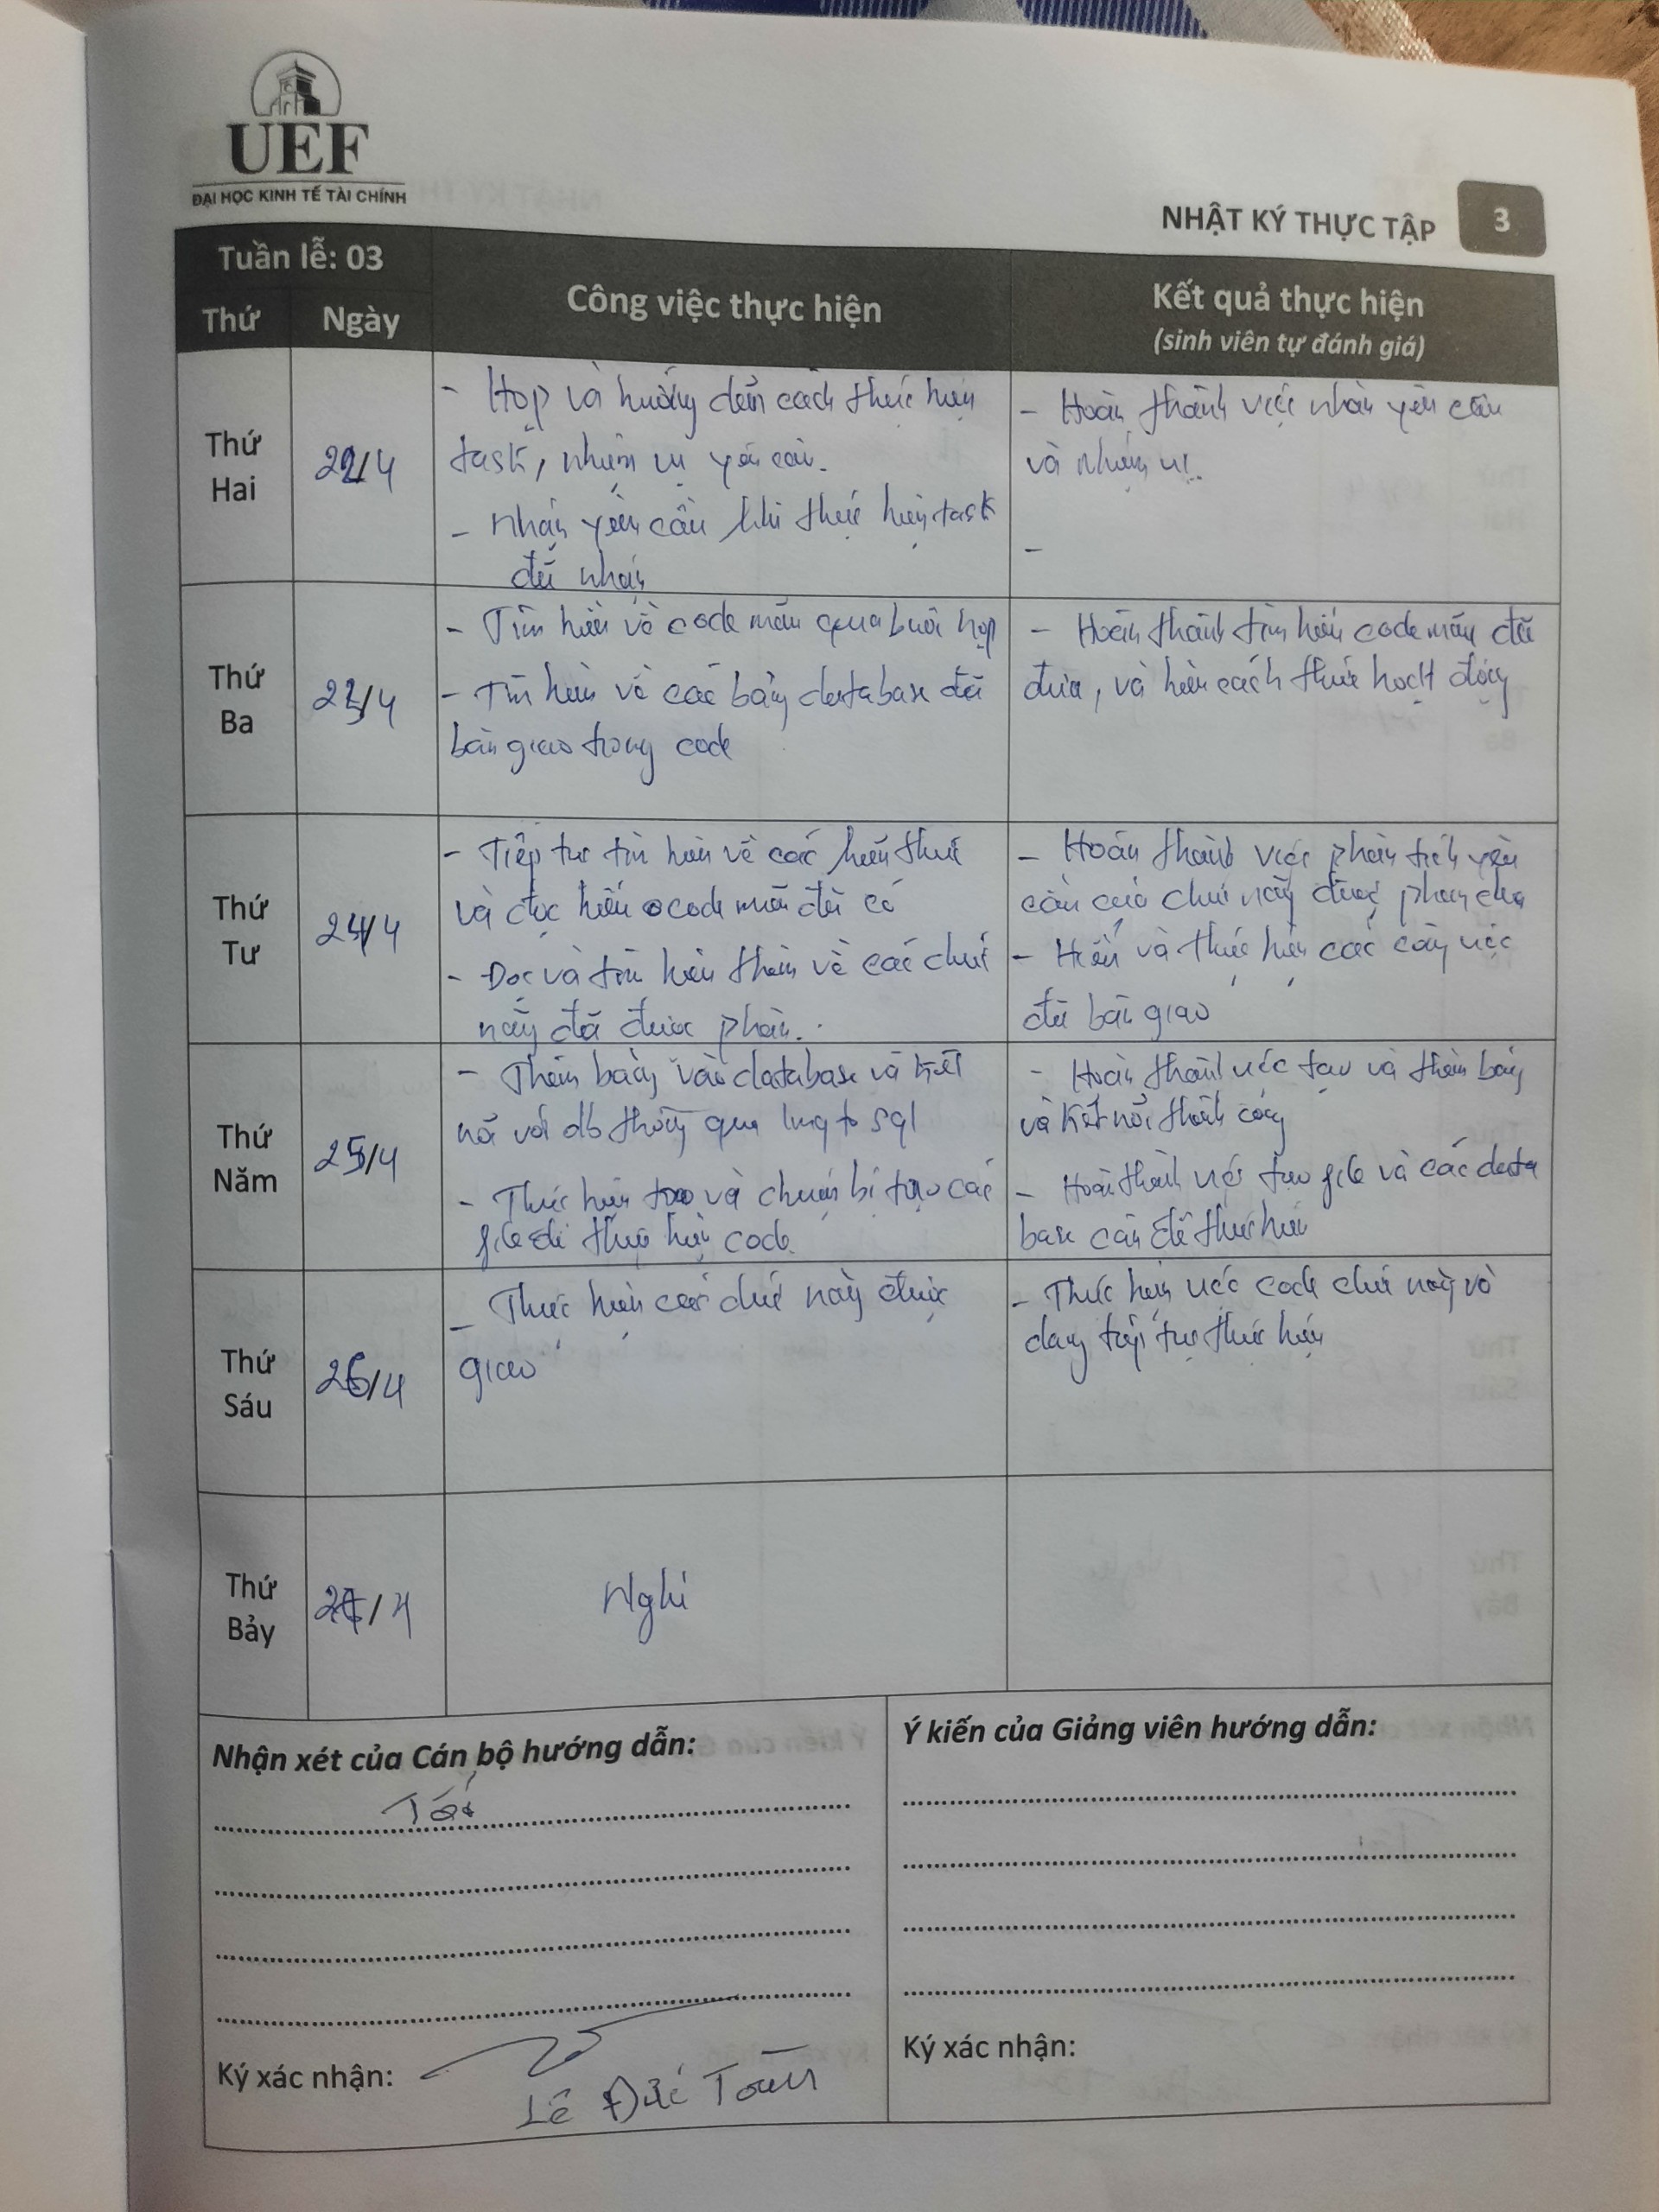 UEF
ĐẠI HỌC KINH TẾ TÀI CHÍNH
NHẬT KÝ THỰC TẬP
3
Tuần lễ: 03
Thứ
Ngày
Công việc thực hiện
Kết quả thực hiện
(sinh viên tự đánh giá)
Thứ
Hai
22/4
- Họp và hướng dẫn cách thức hiện
task, nhiệm vụ yêu cầu.
- Nhận yêu cầu khi thực hiện task
đã nhận
- Hoàn thành việc nhận yêu cầu
và nhiệm vụ.
-
Thứ
Ba
23/4
- Tìm hiểu về code mẫu qua buổi họp
- Tìm hiểu về các bảng database đã
bàn giao trong code
- Hoàn thành tìm hiểu code mẫu đã
đưa, và hiểu cách thức hoạt động
Thứ
Tư
24/4
- Tiếp tục tìm hiểu về các kiến thức
và đọc hiểu code mẫu đã có
- Đọc và tìm hiểu thêm về các chức
năng đã được phân.
- Hoàn thành việc phân tích yêu
cầu của chức năng được phân chia
- Hiểu và thực hiện các công việc
đã bàn giao
Thứ
Năm
25/4
- Thêm bảng vào database và kết
nối với db thông qua linq to sql
- Thực hiện tạo và chuẩn bị tạo các
file để thực hiện code
- Hoàn thành việc tạo và thêm bảng
và kết nối thành công
- Hoàn thành việc tạo file và các data
base cần để thực hiện
Thứ
Sáu
26/4
- Thực hiện các chức năng được
giao
- Thực hiện việc code chức năng và
đang tiếp tục thực hiện
Thứ
Bảy
27/4
Nghỉ
Nhận xét của Cán bộ hướng dẫn:
Tốt
Ký xác nhận:
Lê Đức Toàn
Ý kiến của Giảng viên hướng dẫn:
Ký xác nhận: